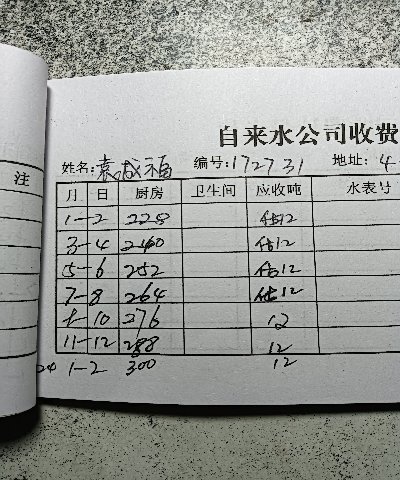 自来水公司收费
注
姓名:袁成福 编号:172731 地址:4-
月 日 厨房 卫生间 应收吨 水表号
1-2 228 估12
3-4 240 估12
5-6 252 估12
7-8 264 估12
9-10 276 12
11-12 288 12
24 1-2 300 12